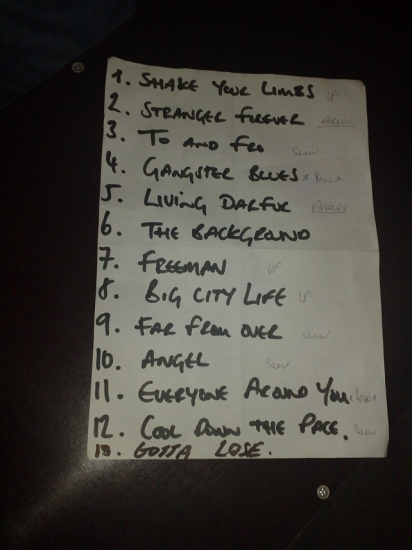 1. SHAKE YOUR LIMBS UP
2. STRANGER FOREVER
3. TO AND FRO SLOW
4. GANGSTER BLUES
5. LIVING DARFUR
6. THE BACKGROUND
7. FREEMAN UP
8. BIG CITY LIFE UP
9. FAR FROM OVER SLOW
10. ANGEL SLOW
11. EVERYONE AROUND YOU
12. COOL DOWN THE PACE. SLOW
13. GOTTA LOSE.